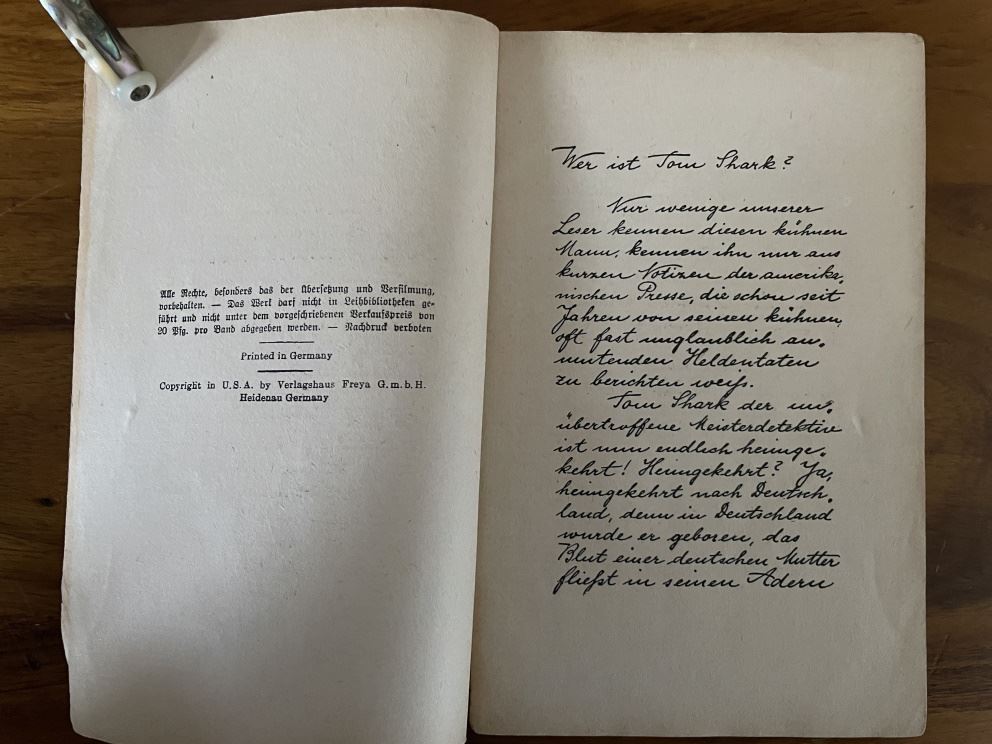 Alle Rechte, besonders das der Übersetzung und Verfilmung,
vorbehalten. — Das Werk darf nicht in Leihbibliotheken ge-
führt und nicht unter dem vorgeschriebenen Verkaufspreis von
20 Pfg. pro Band abgegeben werden. — Nachdruck verboten
Printed in Germany
Copyright in U.S.A. by Verlagshaus Freya G.m.b.H.
Heidenau Germany
Wer ist Tom Shark?
Nur wenige unserer
Leser kennen diesen kühnen
Mann, kennen ihn nur aus
kurzen Notizen der amerika-
nischen Presse, die schon seit
Jahren von seinen kühnen,
oft fast unglaublich an-
mutenden Heldentaten
zu berichten weiß.
Tom Shark der un-
übertroffene Meisterdetektiv
ist nun endlich heimge-
kehrt! Heimgekehrt? Ja,
heimgekehrt nach Deutsch-
land, denn in Deutschland
wurde er geboren, das
Blut einer deutschen Mutter
fließt in seinen Adern